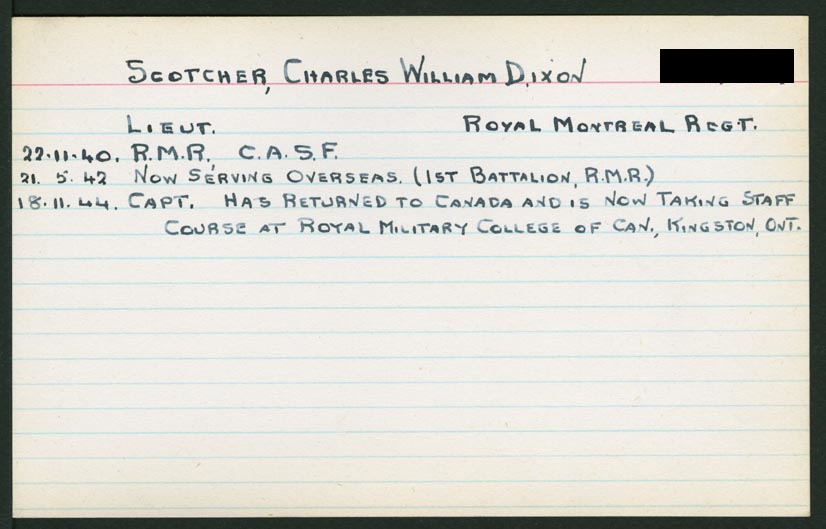 SCOTCHER, CHARLES WILLIAM DIXON
LIEUT. ROYAL MONTREAL REGT.
22.11.40. R.M.R., C.A.S.F.
21. 5. 42 NOW SERVING OVERSEAS. (1ST BATTALION, R.M.R.)
18.11.44. CAPT. HAS RETURNED TO CANADA AND IS NOW TAKING STAFF
COURSE AT ROYAL MILITARY COLLEGE OF CAN., KINGSTON, ONT.